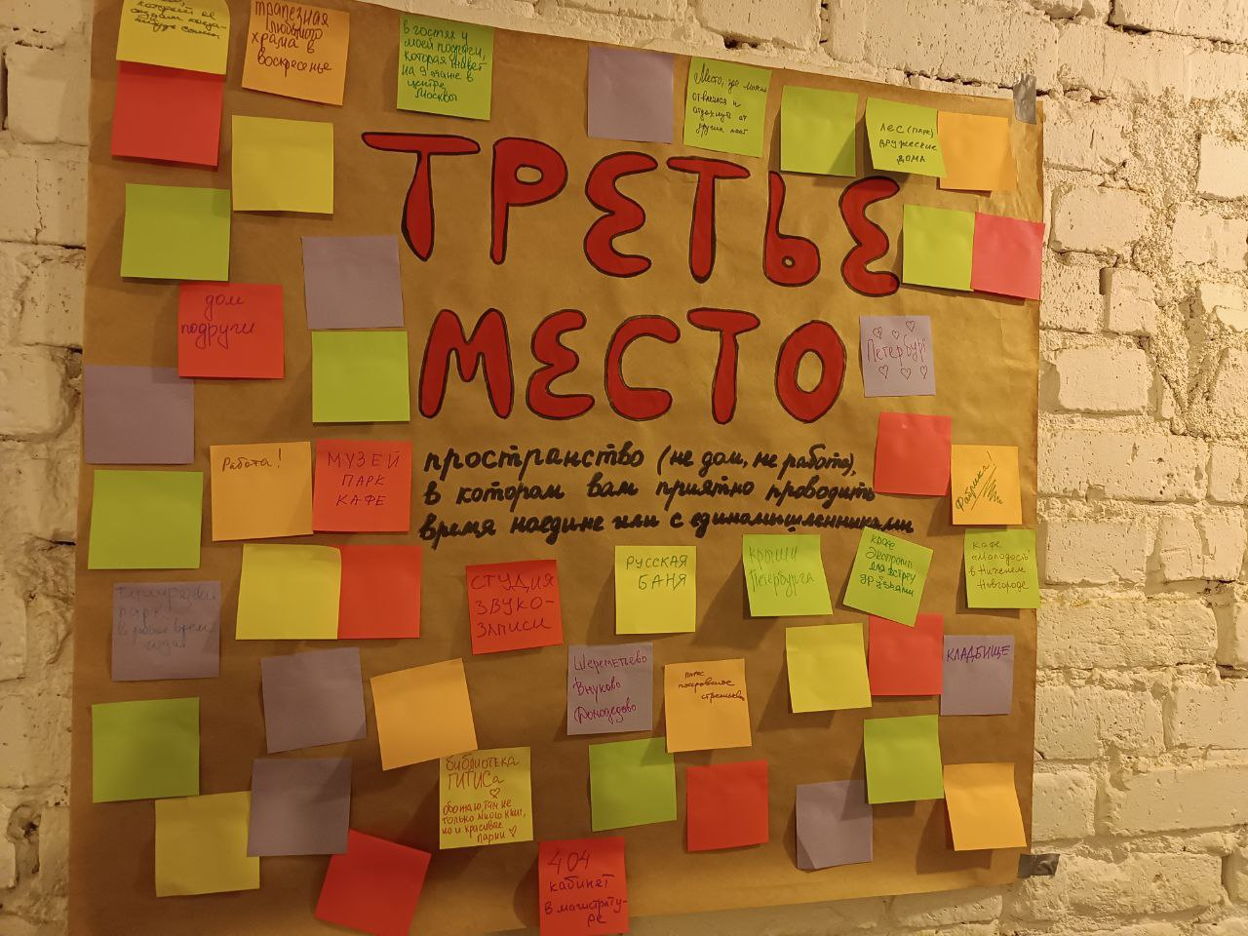 которой я
трапезная
любимого
храма в
воскресенье
в гостях у
моей подруги,
которая живет
на 9 этаже в
центре
Москвы
Место, где можно
отвлечься и
отдохнуть от
других мест
ЛЕС (ПАРК)
ДРУЖЕСКИЕ
ДОМА
ТРЕТЬЕ
МЕСТО
пространство (не дом, не работа),
в котором вам приятно проводить
время наедине или с единомышленниками
дом
подруги
Петербург
Работа!
МУЗЕЙ
ПАРК
КАФЕ
Фабрика!
парк
в рабочее время
СТУДИЯ
ЗВУКО-
ЗАПИСИ
РУССКАЯ
БАНЯ
крыши
Петербурга
кафе
Экспромт
для встреч с
друзьями
кафе
«Молодость»
в Нижнем
Новгороде
Шереметьево
Внуково
Домодедово
парк
покровское
стрешнево
КЛАДБИЩЕ
библиотека
ГИТИСа
обожаю, там не
только много книг,
но и красивые
парни
404
кабинет
в магистрату-
ре